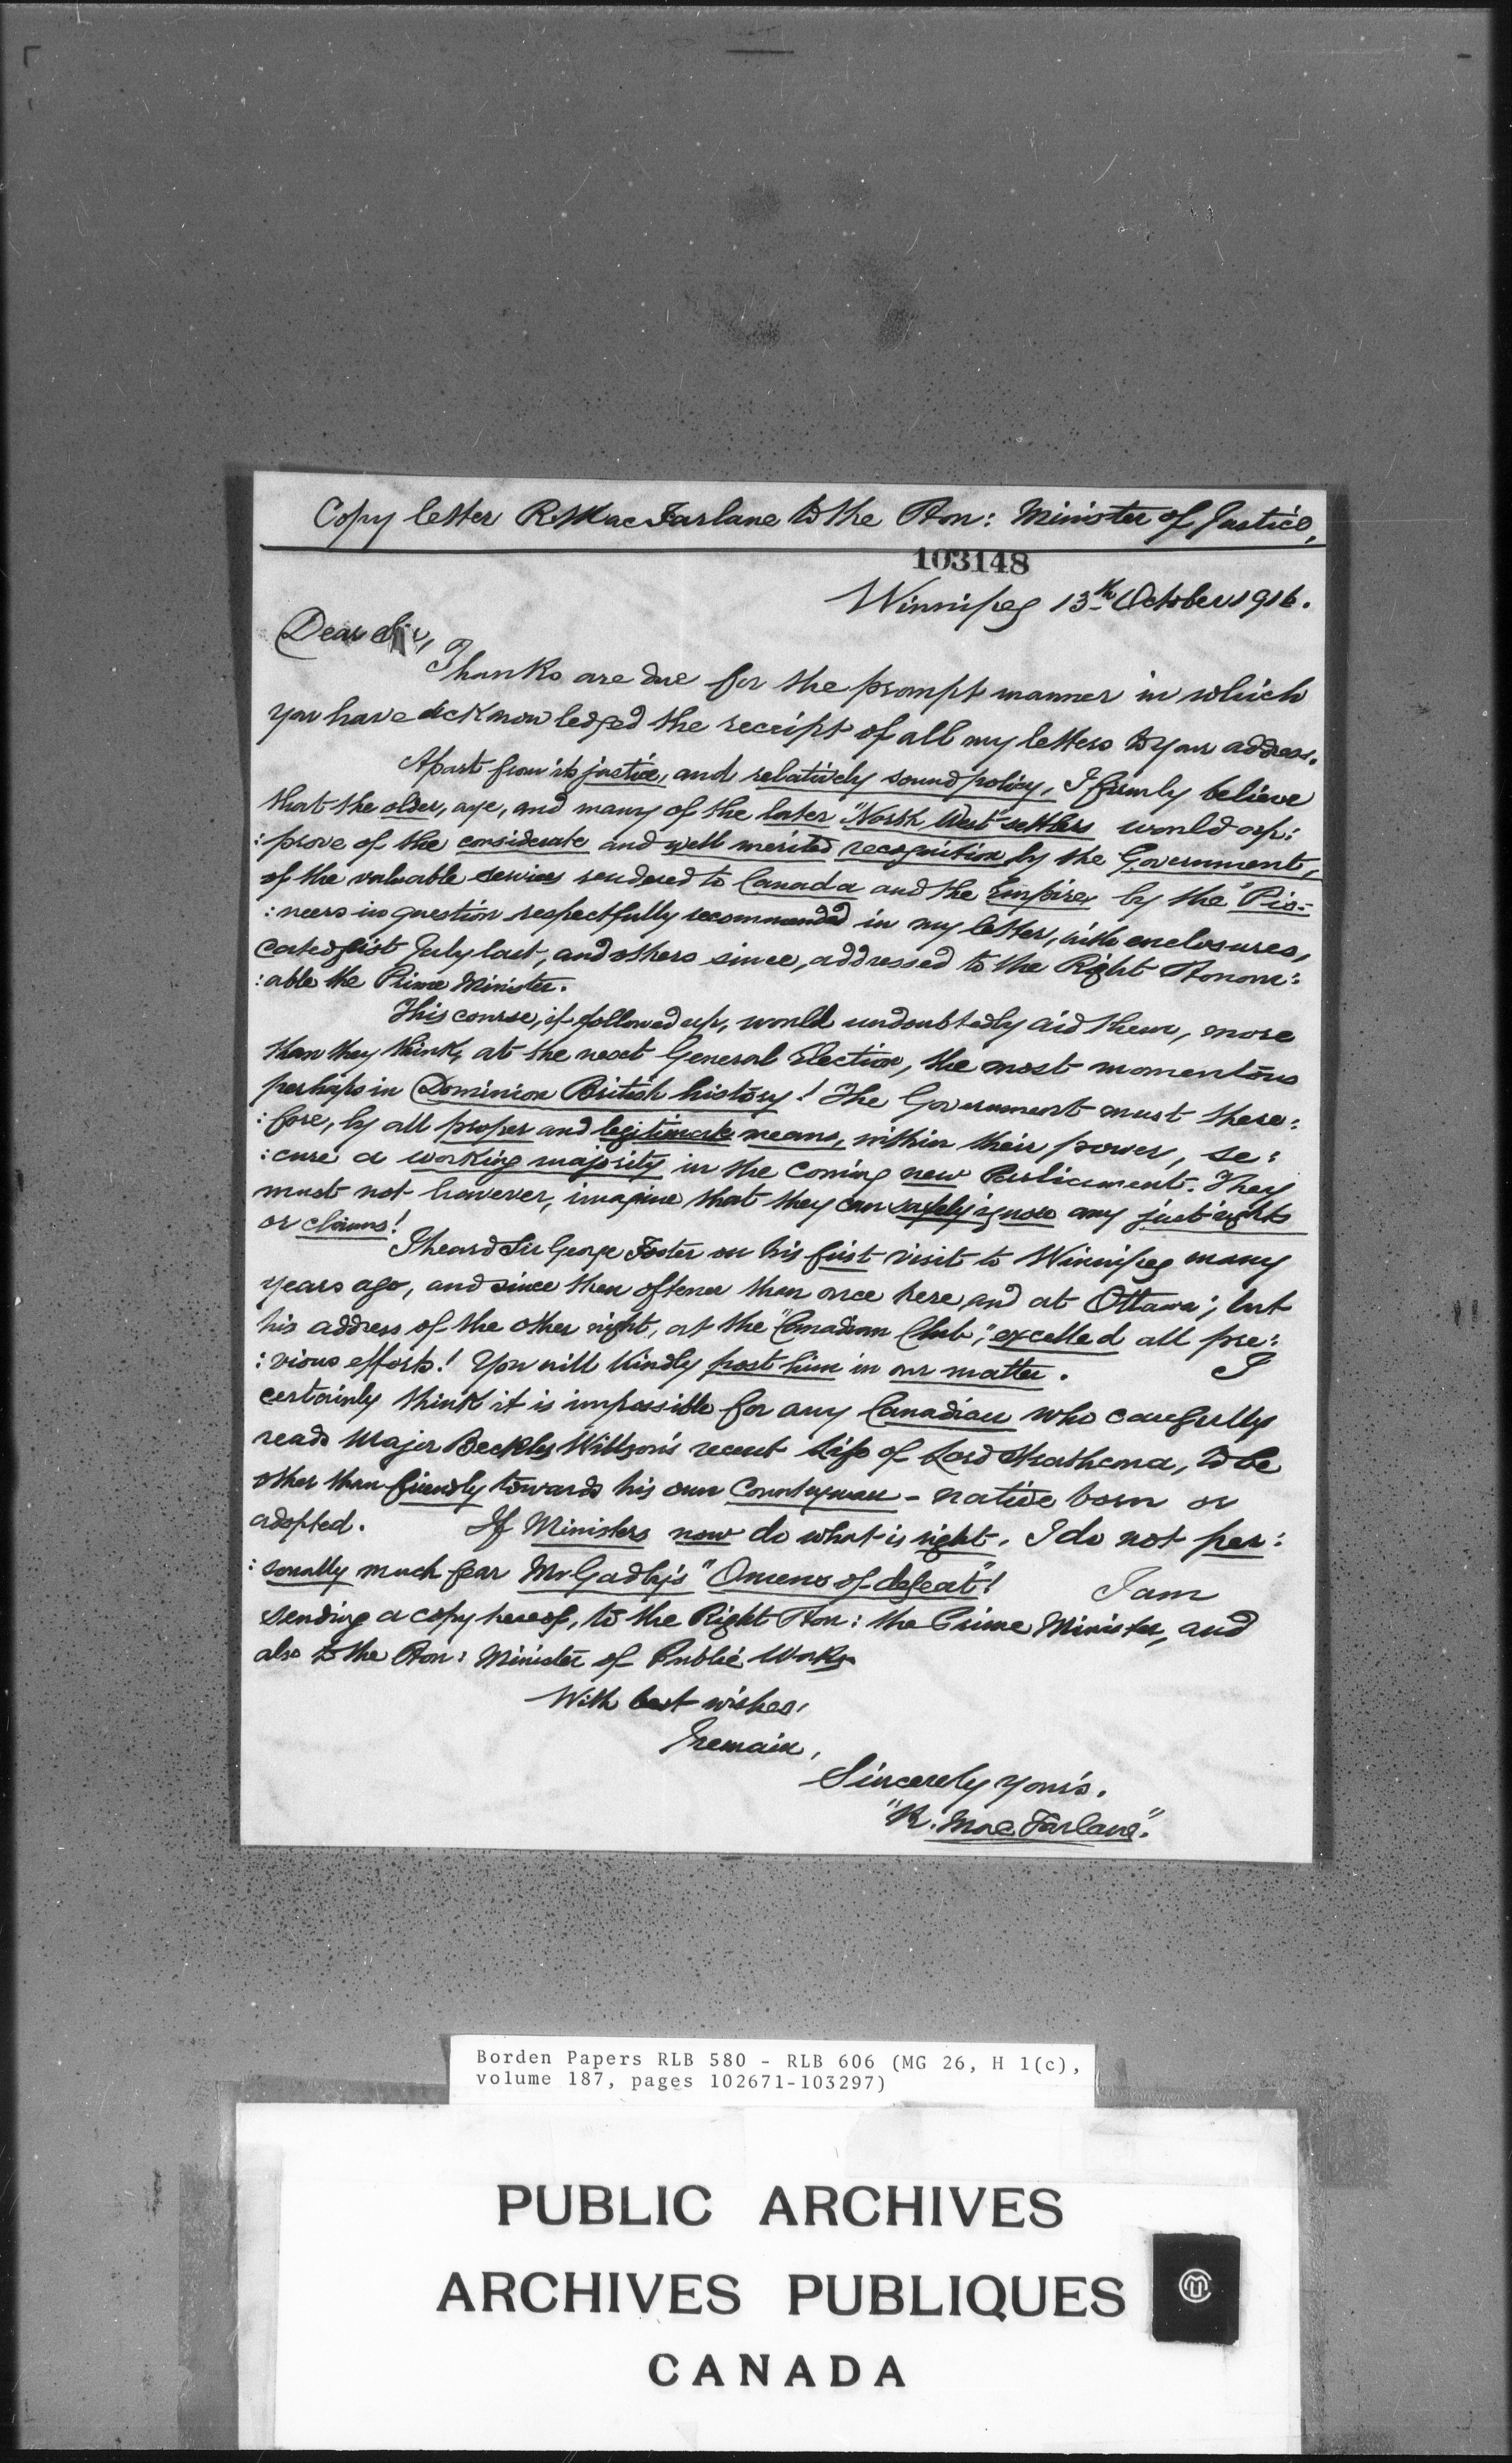 Copy letter R. MacFarlane to the Hon: Minister of Justice,
103148
Winnipeg 13th October 1916.
Dear Sir,
Thanks are due for the prompt manner in which
you have acknowledged the receipt of all my letters to your address.
Apart from its justice, and relatively sound policy, I firmly believe
that the older, aye, and many of the later "North West" settlers would ap:
:prove of the considerate and well merited recognition by the Government,
of the valuable services rendered to Canada and the Empire, by the "Pio:
:neers in question respectfully recommended in my letter, with enclosures,
dated first July last, and others since, addressed to the Right Honour:
:able the Prime Minister.
This course, if followed up, would undoubtedly aid them, more
than they think, at the next General Election, the most momentous
perhaps in Dominion British history! The Government must there:
:fore, by all proper and legitimate means, within their power, se:
:cure a working majority in the coming new Parliament. They
must not however, imagine that they can safely ignore any just rights
or claims!
I heard Sir George Foster on his first visit to Winnipeg many
years ago, and since then oftener than once here and at Ottawa; but
his address of the other night, at the "Canadian Club," excelled all pre:
:vious efforts! You will kindly post him in our matter. I
certainly think it is impossible for any Canadian who carefully
reads Major Beckles Willson's recent Life of Lord Strathcona, to be
other than friendly towards his own Countryman - native born or
adopted. If Ministers now do what is right. I do not per:
:sonally much fear Mr Gadby's "Omens of defeat"! I am
sending a copy hereof, to the Right Hon: the Prime Minister, and
also to the Hon: Minister of Public Works.
With best wishes,
I remain,
Sincerely yours.
"R. MacFarlane."
Borden Papers RLB 580 - RLB 606 (MG 26, H 1(c),
volume 187, pages 102671-103297)
PUBLIC ARCHIVES
ARCHIVES PUBLIQUES
CANADA